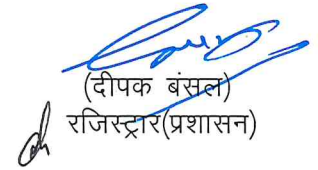 (दीपक बंसल)
रजिस्ट्रार(प्रशासन)